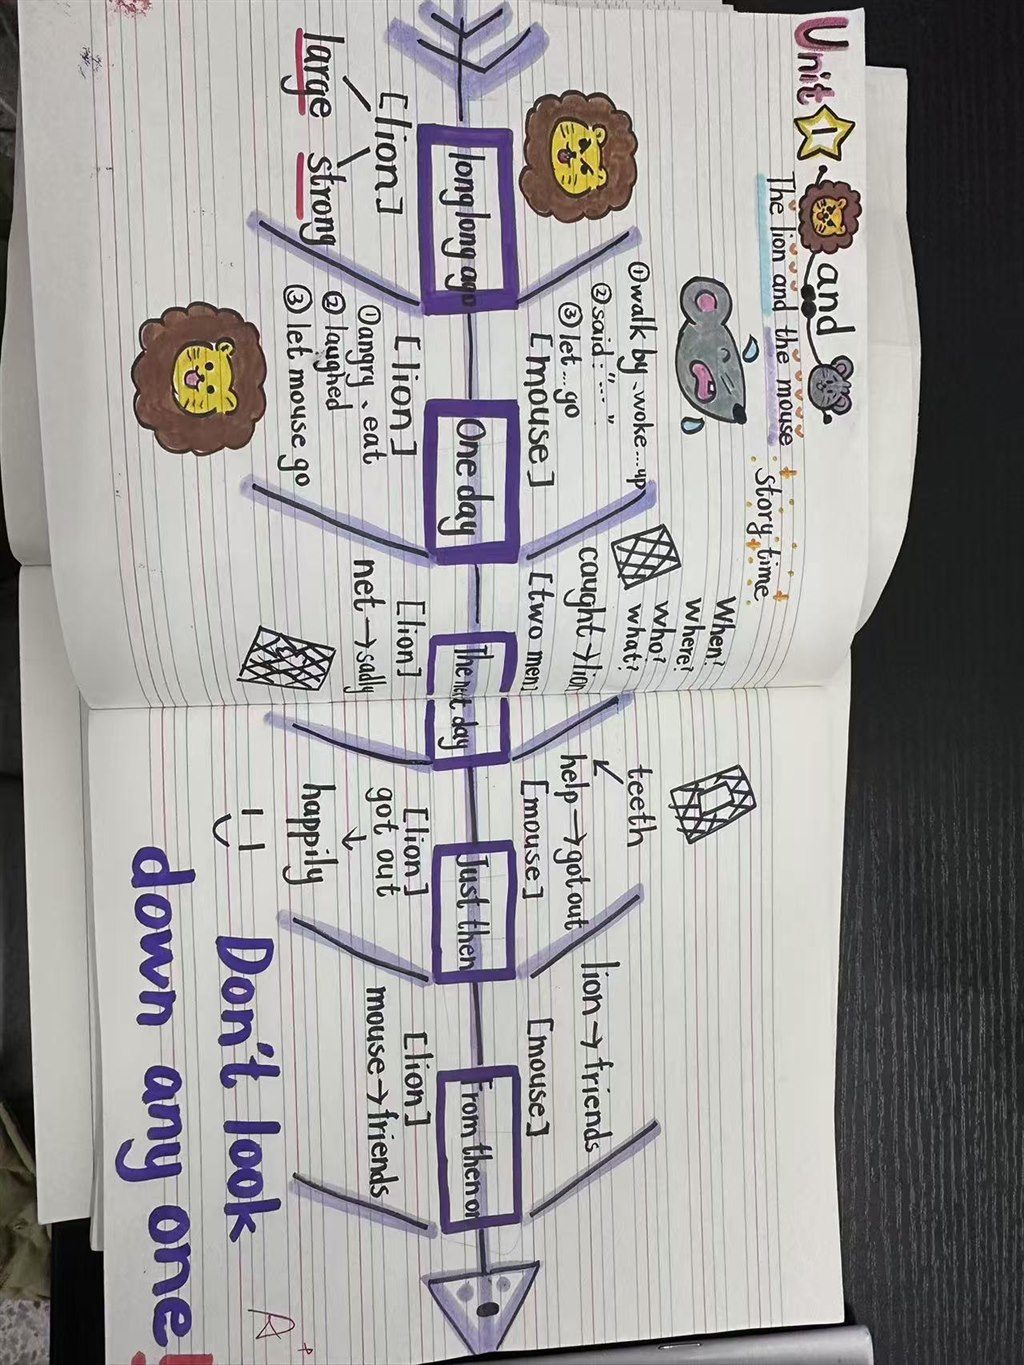 Unit 1 and
The lion and the mouse
story time
When?
Where?
Who?
What?
long long ago
[lion]
large strong
One day
①walk by、woke...up
②said:"......"
③let...go
[mouse]
[lion]
①angry、eat
②laughed
③let mouse go
The next day
caught→lion
[two men]
[lion]
net→sadly
Just then
teeth
help→got out
[mouse]
[lion]
got out
↓
happily
From then on
lion→friends
[mouse]
[lion]
mouse→friends
Don't look
down any one!
A+